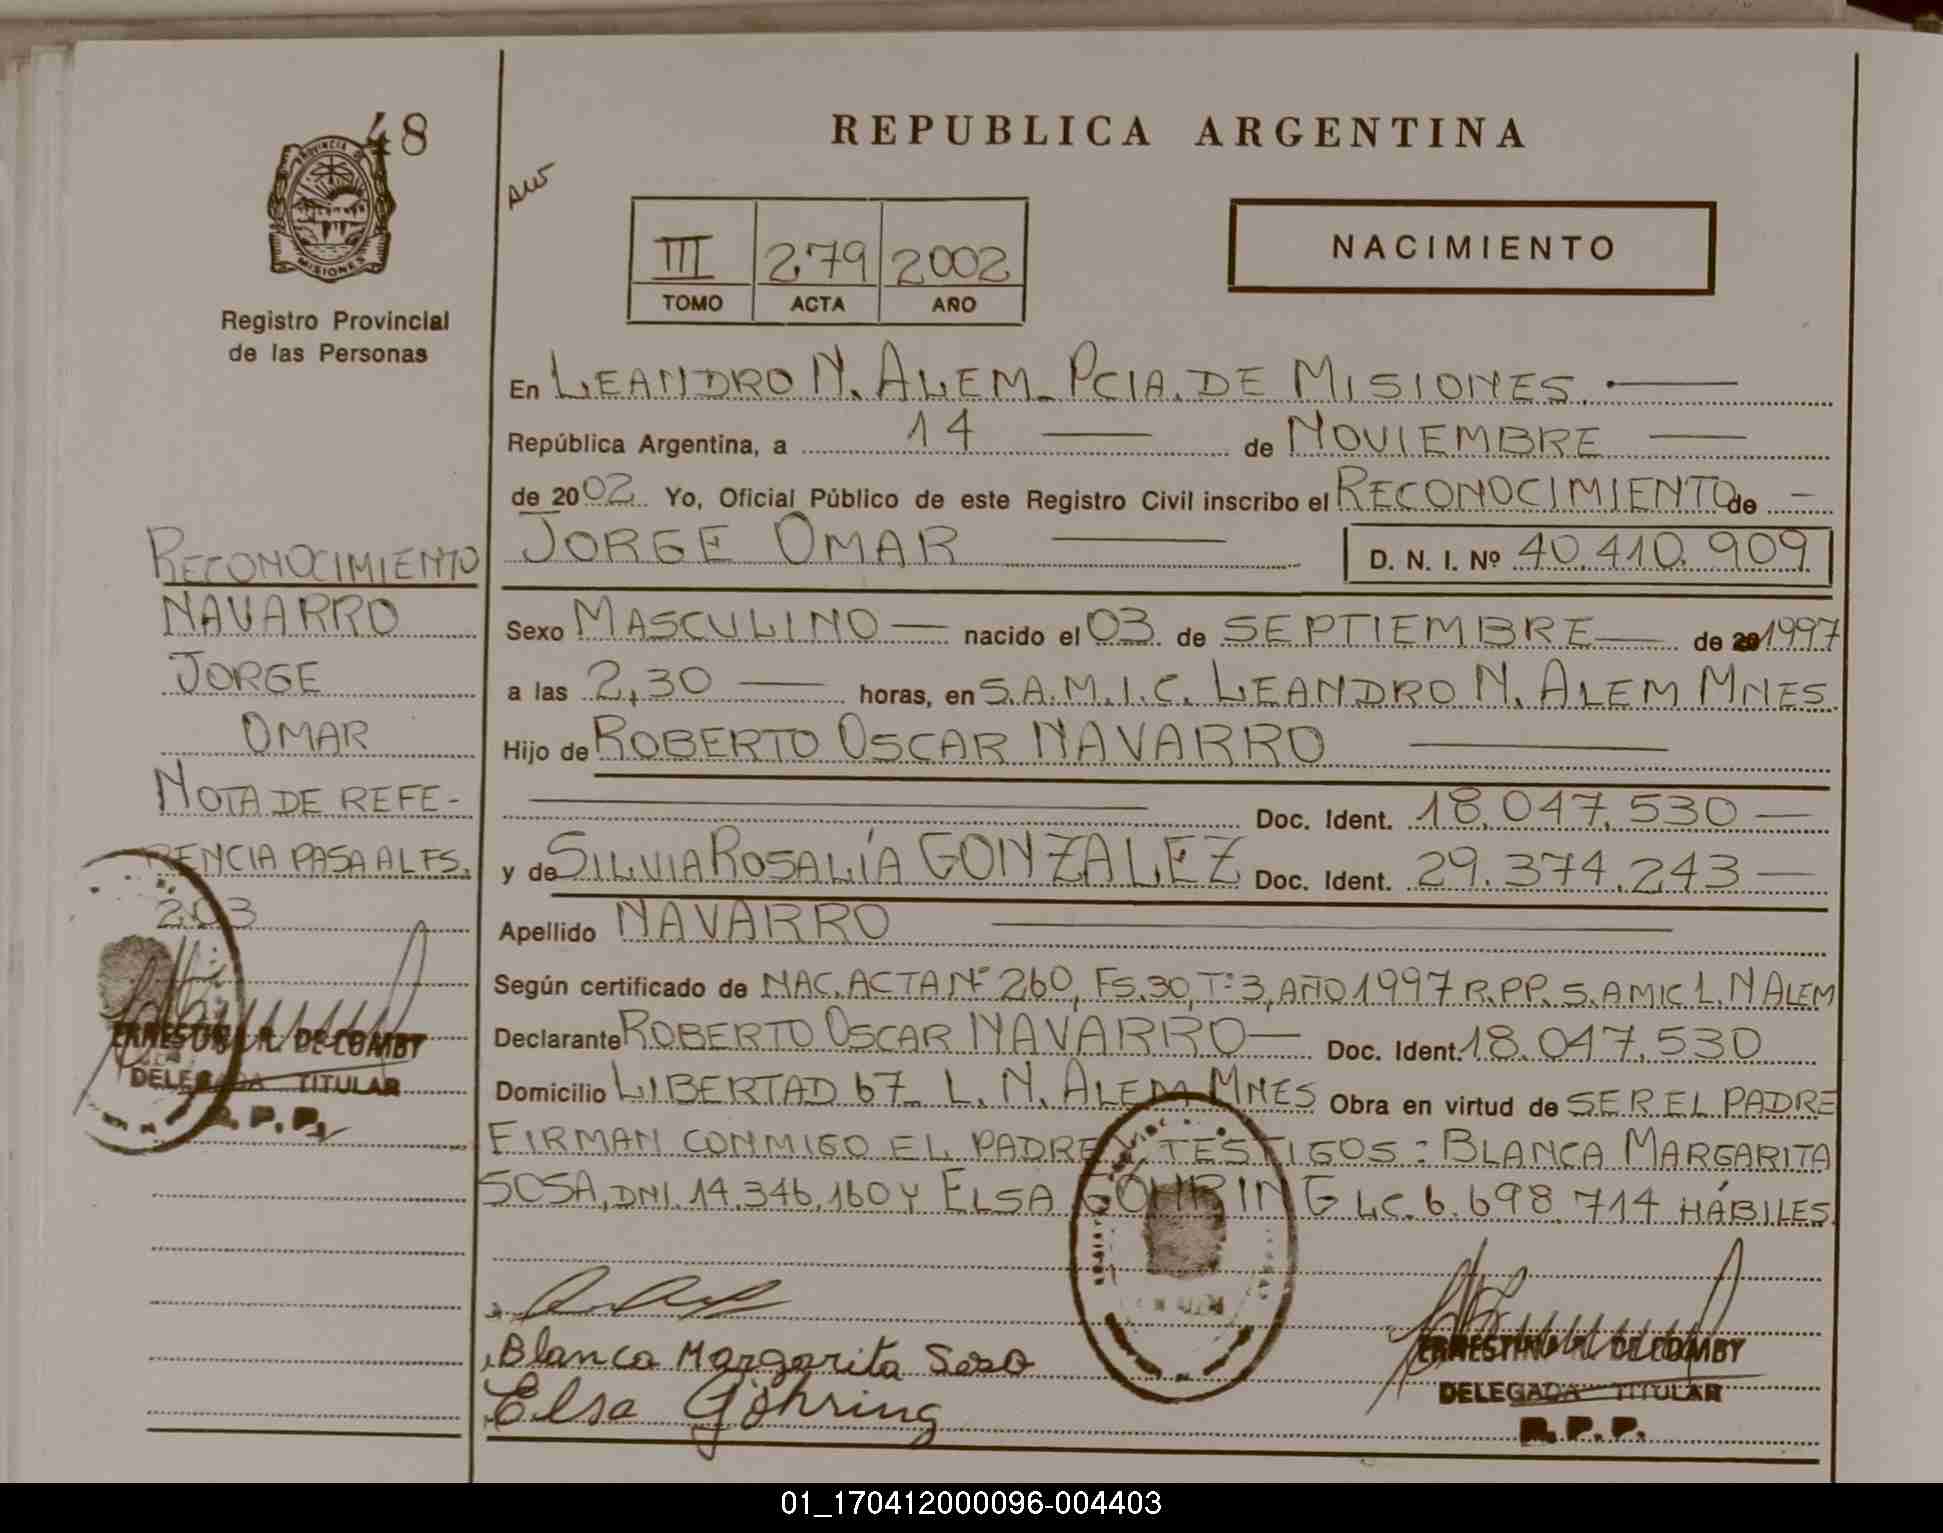 48
PROVINCIA DE
MISIONES
Registro Provincial
de las Personas
RECONOCIMIENTO
NAVARRO
JORGE
OMAR
NOTA DE REFE-
RENCIA PASA AL FS.
203
ERNESTINA R. DE COMBY
DELEGADA TITULAR
R.P.P.
REPUBLICA ARGENTINA
III 279 2002
TOMO ACTA AÑO
NACIMIENTO
En LEANDRO N. ALEM_ PCIA. DE MISIONES.
República Argentina, a 14 de NOVIEMBRE
de 2002 Yo, Oficial Público de este Registro Civil inscribo el RECONOCIMIENTO de
JORGE OMAR D. N. I. Nº 40.410.909
Sexo MASCULINO nacido el 03 de SEPTIEMBRE de 20 1997
a las 2,30 horas, en S.A.M.I.C. LEANDRO N. ALEM MNES.
Hijo de ROBERTO OSCAR NAVARRO
Doc. Ident. 18.047.530
y de SILVIA ROSALÍA GONZALEZ Doc. Ident. 29.374.243
Apellido NAVARRO
Según certificado de NAC. ACTA Nº 260, FS.30, Tº 3, AÑO 1997 R.PP. S.AMIC L.N ALEM
Declarante ROBERTO OSCAR NAVARRO Doc. Ident. 18.047.530
Domicilio LIBERTAD 67_ L. N. ALEM MNES Obra en virtud de SER EL PADRE
FIRMAN CONMIGO EL PADRE Y TESTIGOS: BLANCA MARGARITA
SOSA, DNI. 14.346.160 Y ELSA GÖHRING LC. 6.698.714 HÁBILES.
Blanca Margarita Sosa
Elsa Göhring
ERNESTINA R. DE COMBY
DELEGADA TITULAR
R.P.P.
01_170412000096-004403